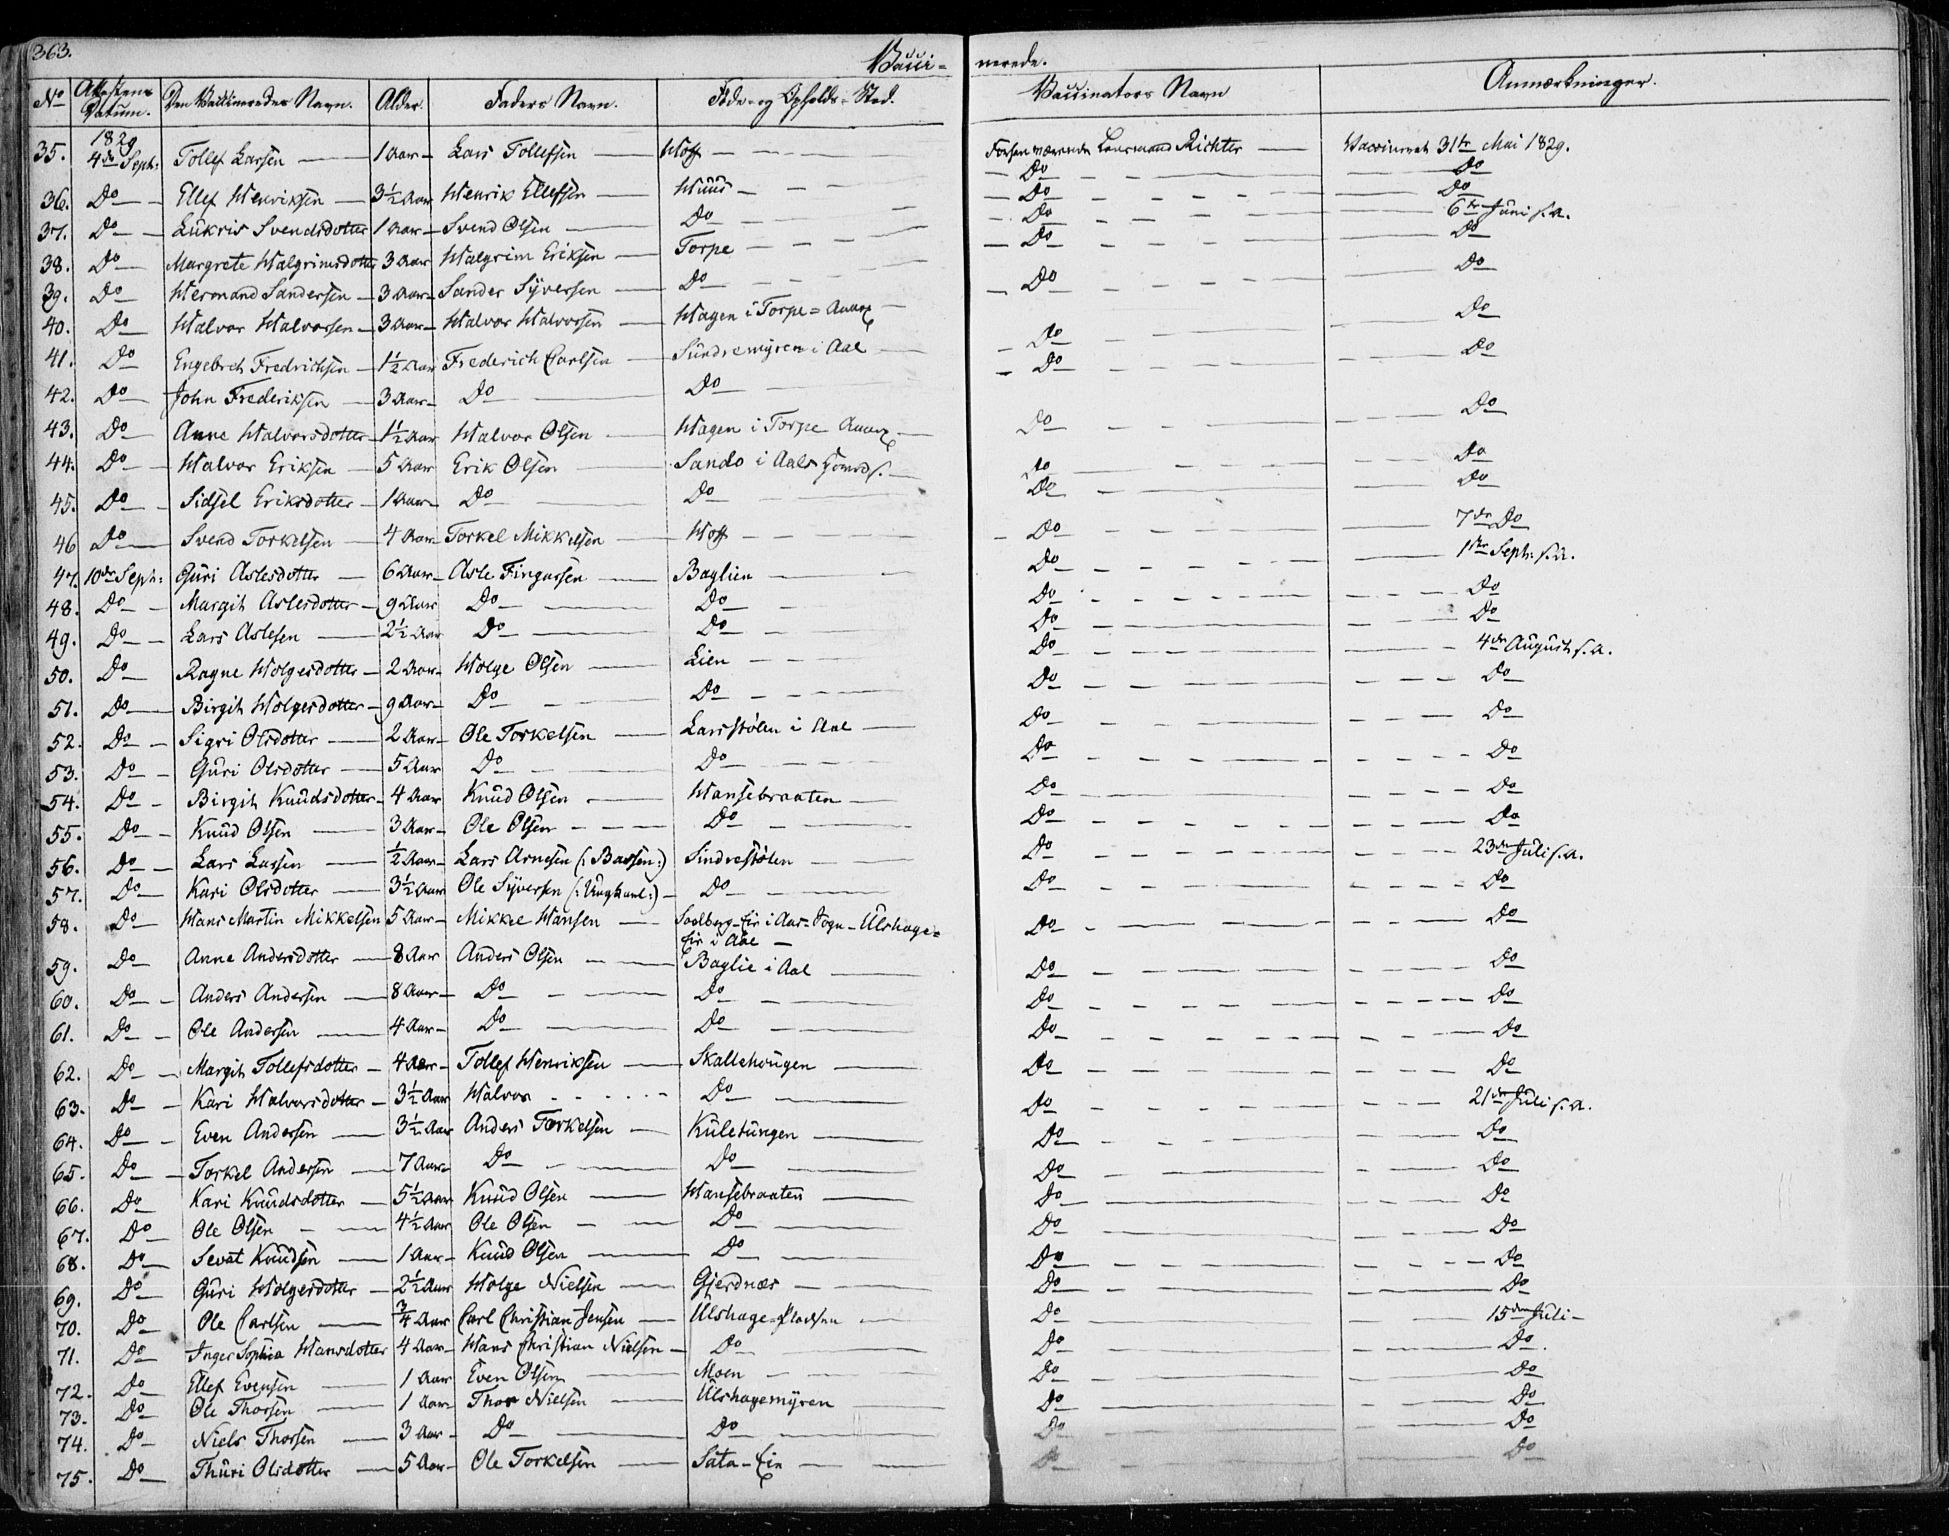 363. Vacci- nerede.
No Attestens Datum. Den Vaccineredes Navn. Alder. Faders Navn. Føde- og Opholds-Sted. Vaccinators Navn Anmærkninger.
1829
35. 4de Septr: Tollef Larsen 1 Aar Lars Tollefsen Hoff Forhenværende Lensmand Richter Vaccineret 31te Mai 1829.
36. Do Ellef Henriksen 3½ Aar Henrik Ellefsen Huus Do Do
37. Do Lukris Svendsdotter 1 Aar Svend Olsen Do Do Do
38. Do Margrete Halgrimsdotter 3 Aar Halgrim Eriksen Torpe Do 6te Juni s.a.
39. Do Hermand Sandersen 3 Aar Sander Syversen Do Do Do
40. Do Halvor Halvorsen 3 Aar Halvor Halvorsen Hagen i Torpe= Do Do
41. Do Engebret Fredrichsen 1½ Aar Frederich Carlsen Sundremyren i Aal Do Do
42. Do John Frederiksen 3 Aar Do Do Do Do
43. Do Anne Halvorsdotter 1½ Aar Halvor Olsen Hagen i Torpe Do Do
44. Do Halvor Eriksen 5 Aar Erik Olsen Sando i Aals Do Do
45. Do Sidsel Eriksdotter 1 Aar Do Do Do Do
46 Do Svend Torkelsen 4 Aar Torkel Mikkelsen Hoff Do 7de Do
47. 10de Septr: Guri Aslesdotter 6 Aar Asle Fingarsen Baglien Do 1ste Septr: s.a.
48. Do Margit Aslesdotter 9 Aar Do Do Do Do
49. Do Lars Aslesen 2½ Aar Do Do Do Do
50. Do Ragne Holgersdotter 2 Aar Holge Olsen Lien Do 4de August s.a.
51. Do Birgit Holgersdotter 9 Aar Do Do Do Do
52. Do Sigri Olsdotter 2 Aar Ole Torkelsen Larsstølen i Aal Do Do
53. Do Guri Olsdotter 5 Aar Do Do Do Do
54. Do Birgit Knudsdotter 4 Aar Knud Olsen Hansebraaten Do Do
55. Do Knud Olsen 3 Aar Ole Olsen Do Do Do
56. Do Lars Larsen ½ Aar Lars Arnesen (: Bassen:) Sindrestølen Do 23de Juli s.a.
57. Do Kari Olsdotter 3½ Aar Ole Syversen (: Ungkarl:) Do Do Do
58. Do Hans Martin Mikkelsen 5 Aar Mikkel Hansen Solberg-Eie i Aas-Sogn-Ulshage= Do Do
Eie i Aal
59. Do Anne Andersdotter 8 Aar Anders Olsen Baglie i Aal Do Do
60. Do Anders Andersen 8 Aar Do Do Do Do
61. Do Ole Andersen 4 Aar Do Do Do Do
62. Do Margit Tollefsdotter 4 Aar Tollef Henriksen Skallehougen Do Do
63. Do Kari Halvorsdotter 3½ Aar Halvor Do Do 21de Juli s.a.
64. Do Even Andersen 3½ Aar Anders Torkelsen Kuletungen Do Do
65. Do Torkel Andersen 7 Aar Do Do Do Do
66. Do Kari Knudsdotter 5½ Aar Knud Olsen Hansebraaten Do Do
67. Do Ole Olsen 4½ Aar Ole Olsen Do Do Do
68. Do Sevat Knudsen 1 Aar Knud Olsen Do Do Do
69. Do Guri Holgersdotter 2½ Aar Holge Nielsen Gjerdnæs Do Do
70. Do Ole Carlsen ¾ Aar Carl Christian Jensen Ulshage=Pladsen Do 15den Juli
71. Do Inger Sophia Hansdotter 4 Aar Hans Christian Nielsen Do Do Do.
72. Do Ellef Evensen 1 Aar Even Olsen Moen Do Do
73. Do Ole Thorsen 1 Aar Thor Nielsen Ulshagemyren Do Do
74. Do Niels Thorsen 3 Aar Do Do Do Do
75. Do Thuri Olsdotter 5 Aar Ole Torkelsen Sata-Eie Do Do